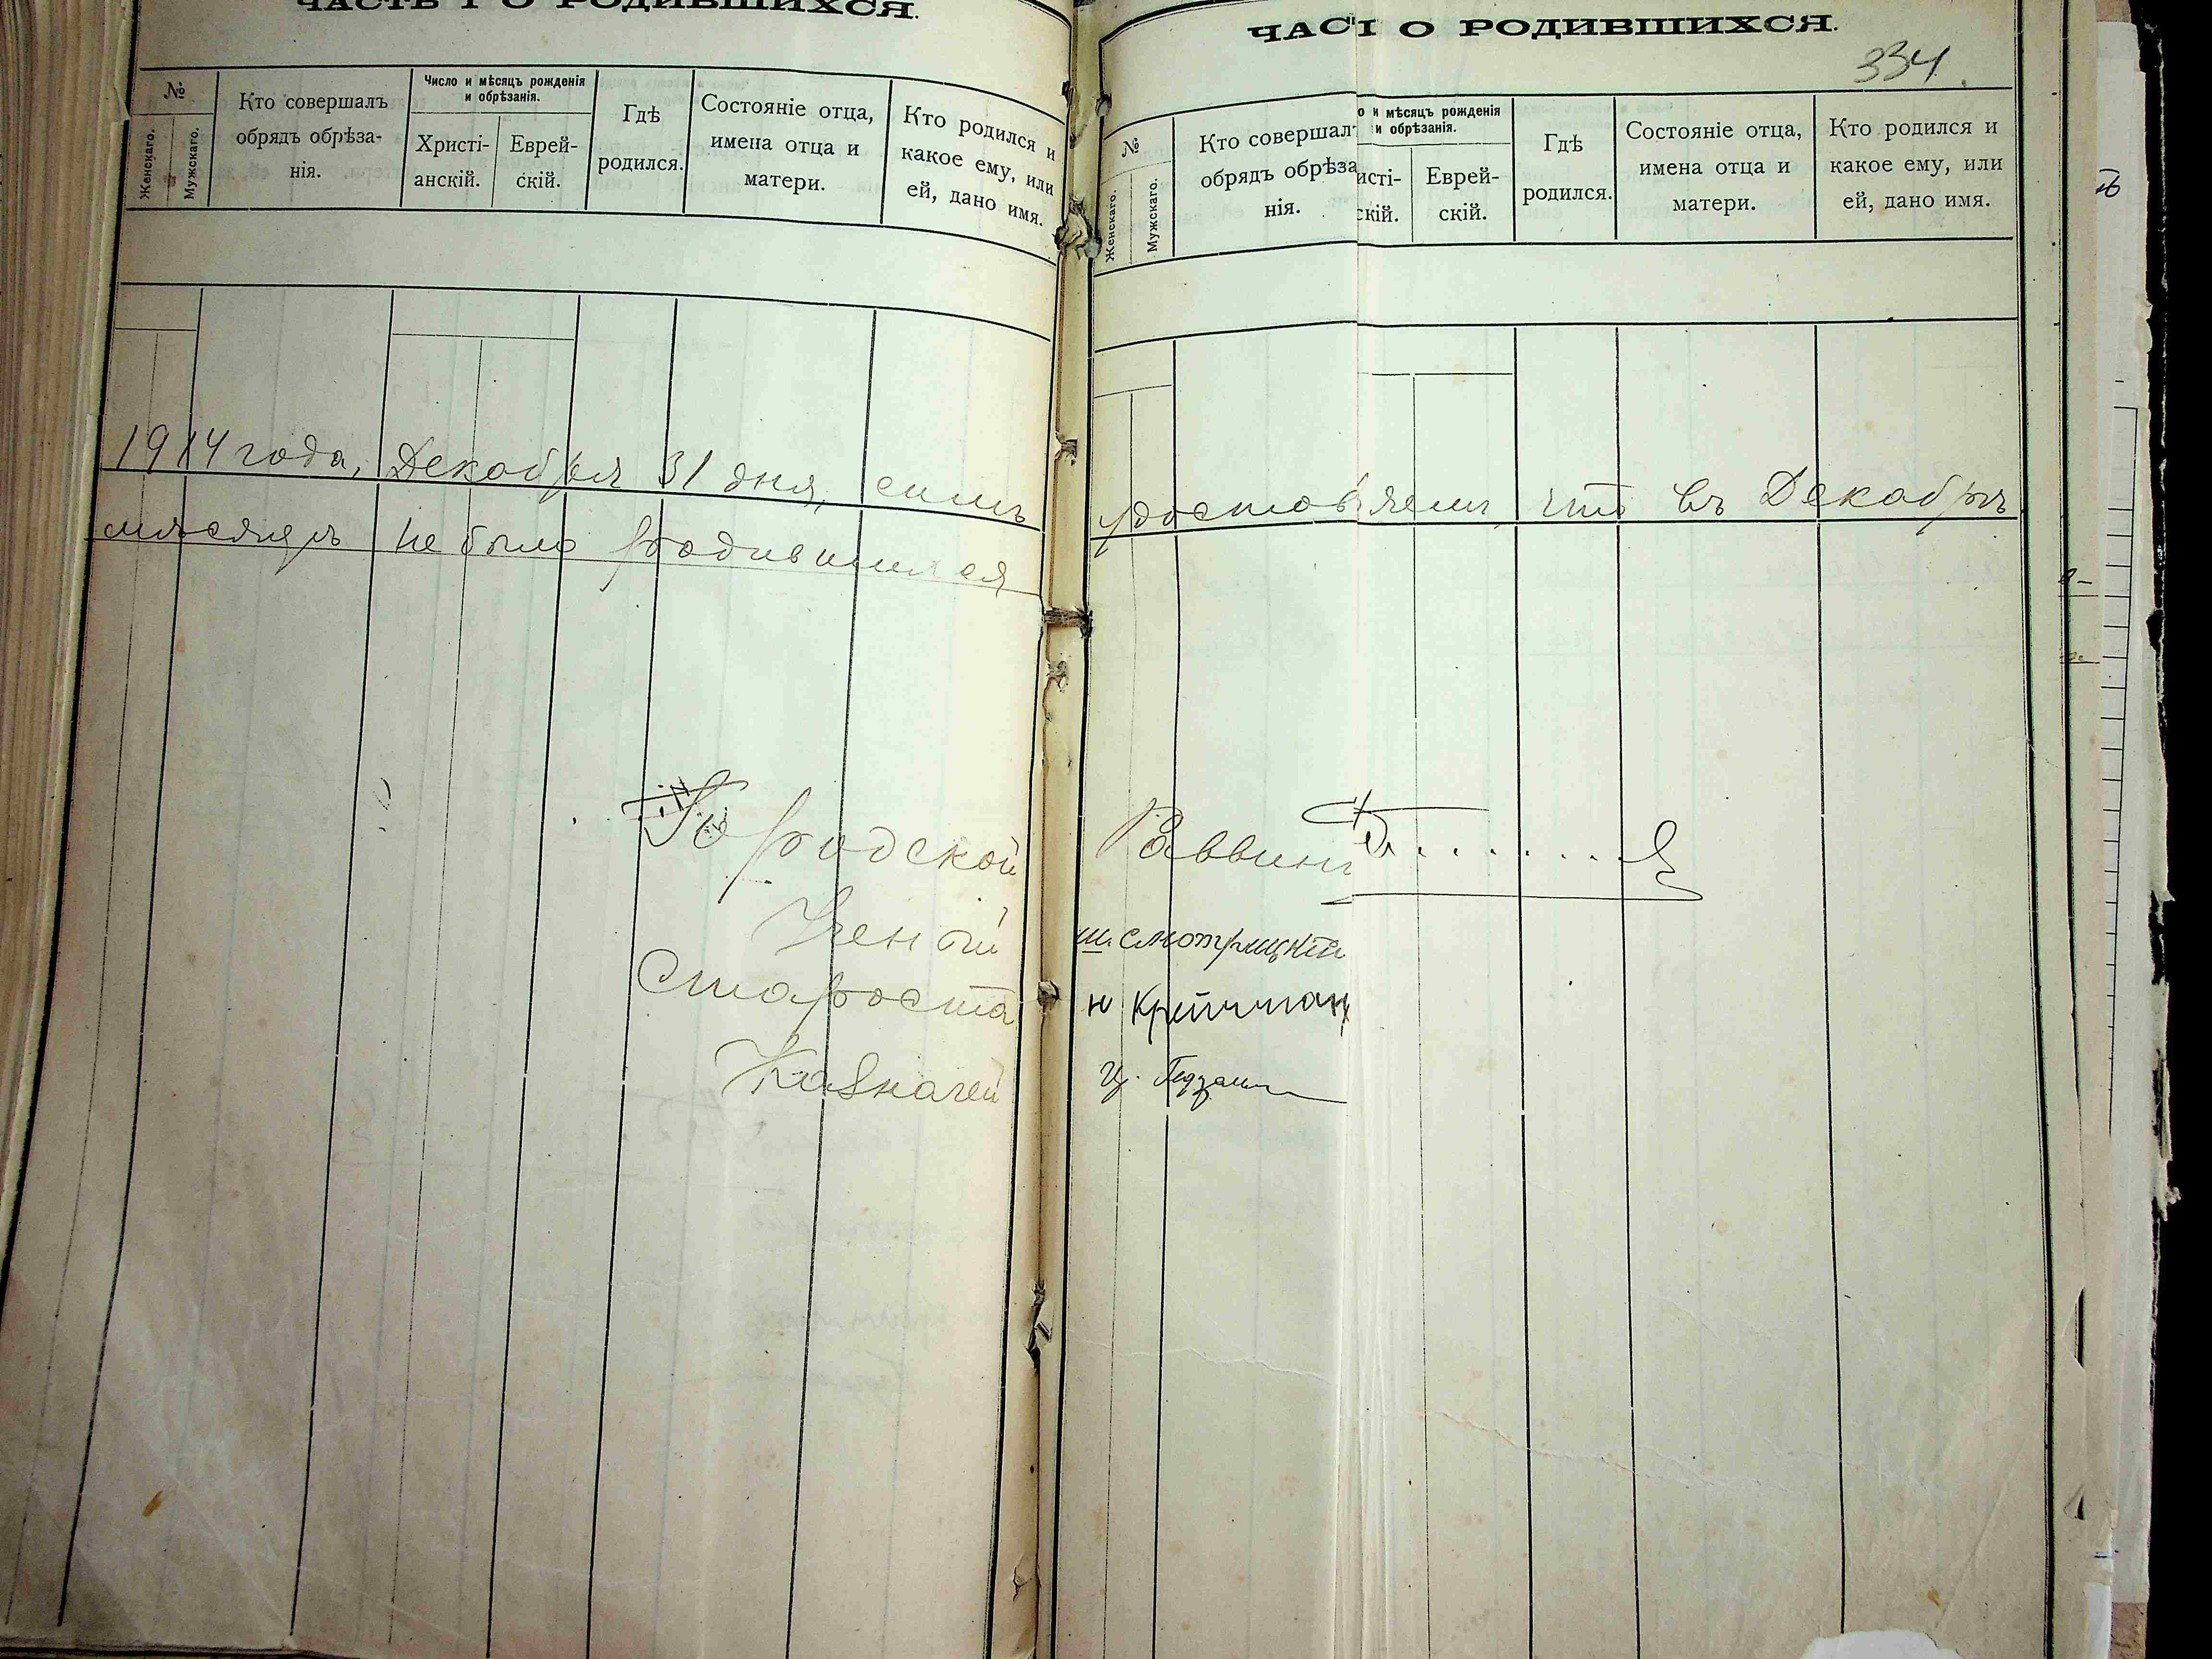 ЧАСТЬ I О РОДИВШИХСЯ.
№
Женскаго.
Мужскаго.
Кто совершалъ
обрядъ обрѣза-
нія.
Число и мѣсяцъ рожденія
и обрѣзанія.
Христі-
анскій.
Еврей-
скій.
Гдѣ
родился.
Состояніе отца,
имена отца и
матери.
Кто родился и
какое ему, или
ей, дано имя.
ЧАСІ О РОДИВШИХСЯ.
334.
№
Женскаго.
Мужскаго.
Кто совершал
обрядъ обрѣза
нія.
о и мѣсяцъ рожденія
и обрѣзанія.
исті-
скій.
Еврей-
скій.
Гдѣ
родился.
Состояніе отца,
имена отца и
матери.
Кто родился и
какое ему, или
ей, дано имя.
1914 года, Декабря 31 дня, симъ удостовѣряемъ, что въ Декабрѣ
мѣсяцѣ не было родившихся
Городской Раввинъ
Ученый Ш. Смотрицкій
Староста Н
Казначей